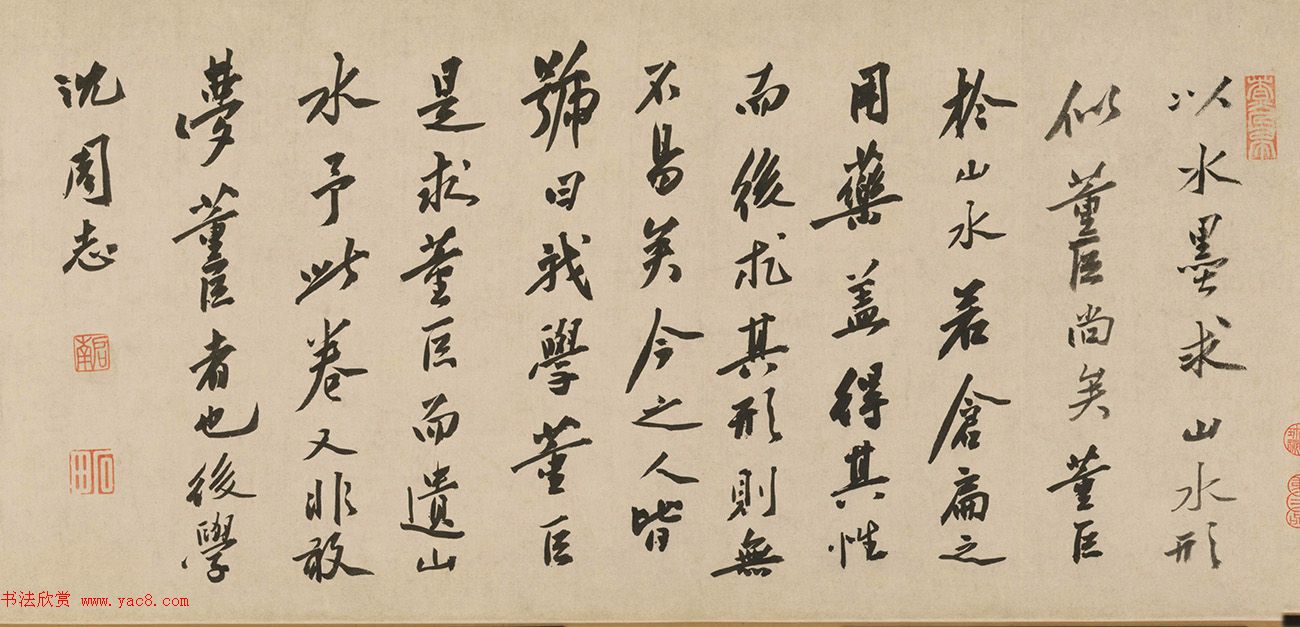 以水墨求山水形
似董巨尚矣董巨
於山水若倉扁之
用藥盖得其性
而後求其形則無
不易矣今之人皆
號曰我學董巨
是求董巨而遺山
水予此卷又非敢
夢董巨者也後學
沈周志
啟南
石田
书法欣赏 www.yac8.com